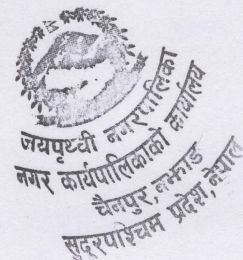 जयपृथ्वी नगरपालिका
नगर कार्यपालिकाको कार्यालय
चैनपुर, बझाङ
सुदूरपश्चिम प्रदेश, नेपाल